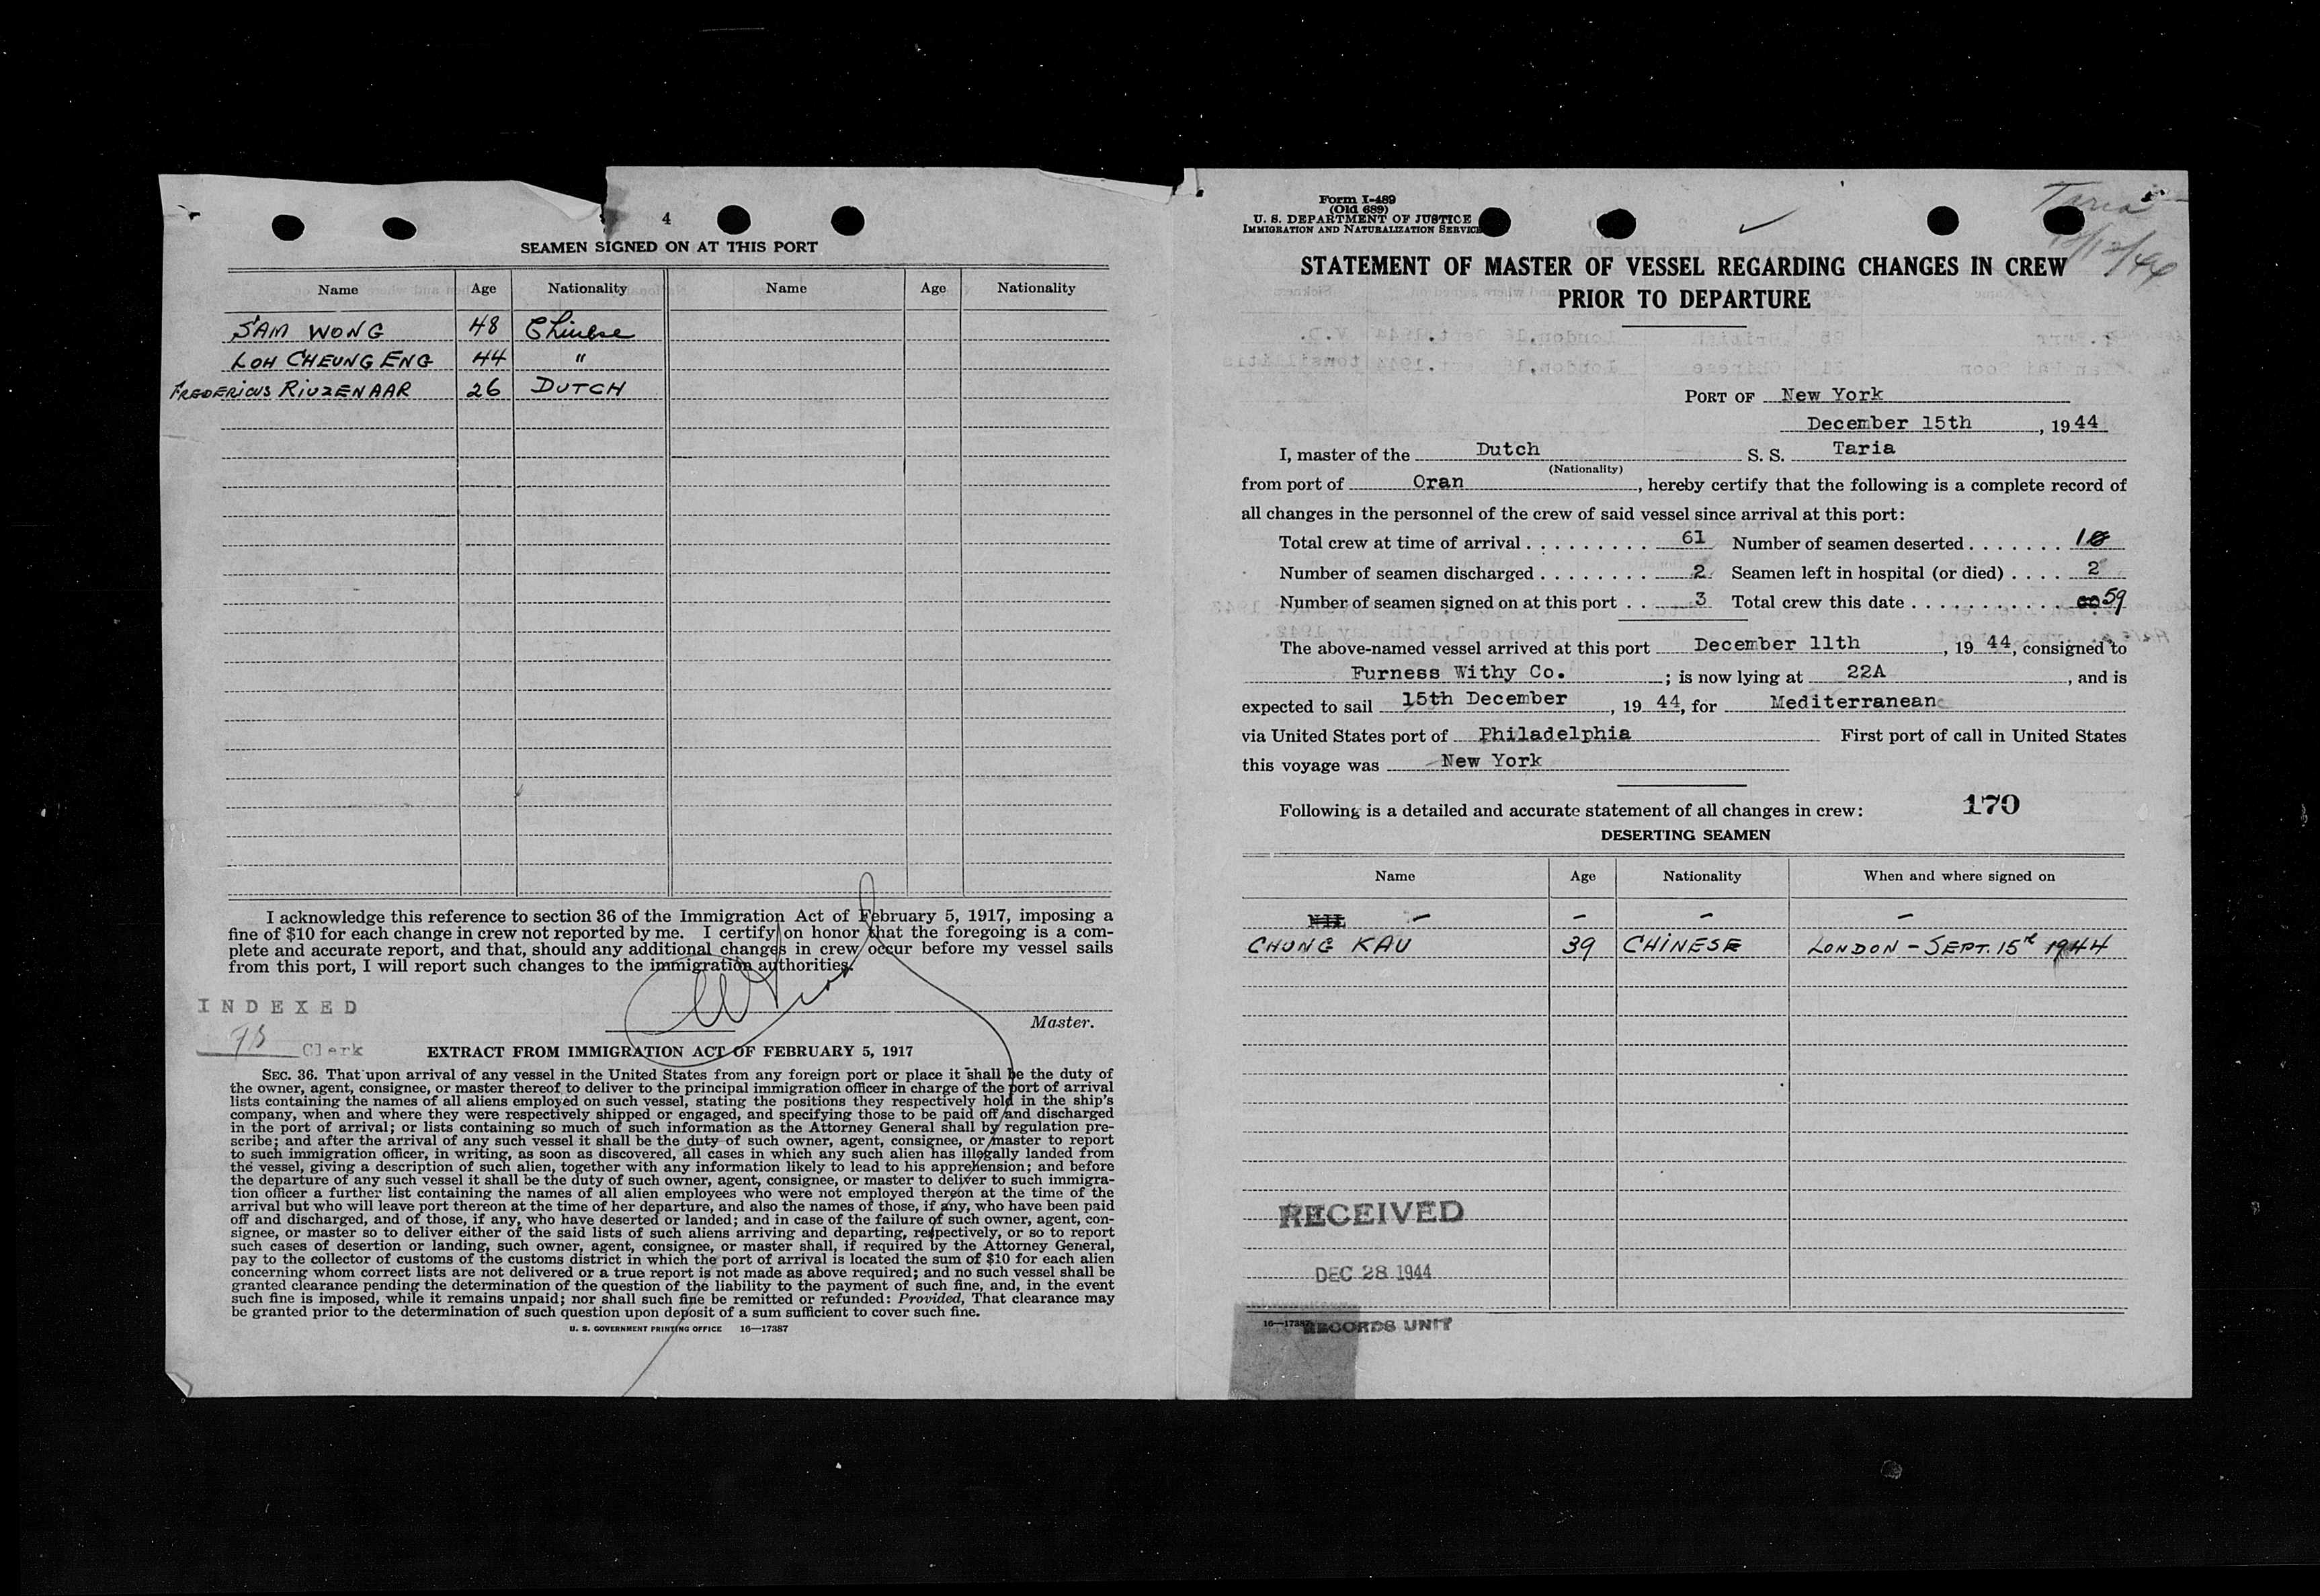 4
SEAMEN SIGNED ON AT THIS PORT
Name Age Nationality Name Age Nationality
SAM WONG 48 Chinese
LOH CHEUNG ENG 44 "
FREDERICUS RIUZENAAR 26 DUTCH
I acknowledge this reference to section 36 of the Immigration Act of February 5, 1917, imposing a
fine of $10 for each change in crew not reported by me. I certify on honor that the foregoing is a com-
plete and accurate report, and that, should any additional changes in crew occur before my vessel sails
from this port, I will report such changes to the immigration authorities.
INDEXED
Master.
Clerk
EXTRACT FROM IMMIGRATION ACT OF FEBRUARY 5, 1917
SEC. 36. That upon arrival of any vessel in the United States from any foreign port or place it shall be the duty of
the owner, agent, consignee, or master thereof to deliver to the principal immigration officer in charge of the port of arrival
lists containing the names of all aliens employed on such vessel, stating the positions they respectively hold in the ship's
company, when and where they were respectively shipped or engaged, and specifying those to be paid off and discharged
in the port of arrival; or lists containing so much of such information as the Attorney General shall by regulation pre-
scribe; and after the arrival of any such vessel it shall be the duty of such owner, agent, consignee, or master to report
to such immigration officer, in writing, as soon as discovered, all cases in which any such alien has illegally landed from
the vessel, giving a description of such alien, together with any information likely to lead to his apprehension; and before
the departure of any such vessel it shall be the duty of such owner, agent, consignee, or master to deliver to such immigra-
tion officer a further list containing the names of all alien employees who were not employed thereon at the time of the
arrival but who will leave port thereon at the time of her departure, and also the names of those, if any, who have been paid
off and discharged, and of those, if any, who have deserted or landed; and in case of the failure of such owner, agent, con-
signee, or master so to deliver either of the said lists of such aliens arriving and departing, respectively, or so to report
such cases of desertion or landing, such owner, agent, consignee, or master shall, if required by the Attorney General,
pay to the collector of customs of the customs district in which the port of arrival is located the sum of $10 for each alien
concerning whom correct lists are not delivered or a true report is not made as above required; and no such vessel shall be
granted clearance pending the determination of the question of the liability to the payment of such fine, and, in the event
such fine is imposed, while it remains unpaid; nor shall such fine be remitted or refunded: Provided, That clearance may
be granted prior to the determination of such question upon deposit of a sum sufficient to cover such fine.
U. S. GOVERNMENT PRINTING OFFICE 16—17387
Form I-489
(Old 689)
U. S. DEPARTMENT OF JUSTICE
IMMIGRATION AND NATURALIZATION SERVICE
Taria
12/12/44
STATEMENT OF MASTER OF VESSEL REGARDING CHANGES IN CREW
PRIOR TO DEPARTURE
PORT OF New York
December 15th, 1944
I, master of the Dutch S. S. Taria
(Nationality)
from port of Oran, hereby certify that the following is a complete record of
all changes in the personnel of the crew of said vessel since arrival at this port:
Total crew at time of arrival . . . . . . . . . 61 Number of seamen deserted . . . . . . . 1
Number of seamen discharged . . . . . . . . 2 Seamen left in hospital (or died) . . . . 2
Number of seamen signed on at this port . . 3 Total crew this date . . . . . . . . . . . . 59
The above-named vessel arrived at this port December 11th, 19 44, consigned to
Furness Withy Co. ; is now lying at 22A, and is
expected to sail 15th December, 19 44, for Mediterranean
via United States port of Philadelphia First port of call in United States
this voyage was New York
Following is a detailed and accurate statement of all changes in crew: 170
DESERTING SEAMEN
Name Age Nationality When and where signed on
NIL – – – –
CHUNG KAU 39 CHINESE LONDON – SEPT. 15 1944
RECEIVED
DEC 28 1944
16—17387
RECORDS UNIT